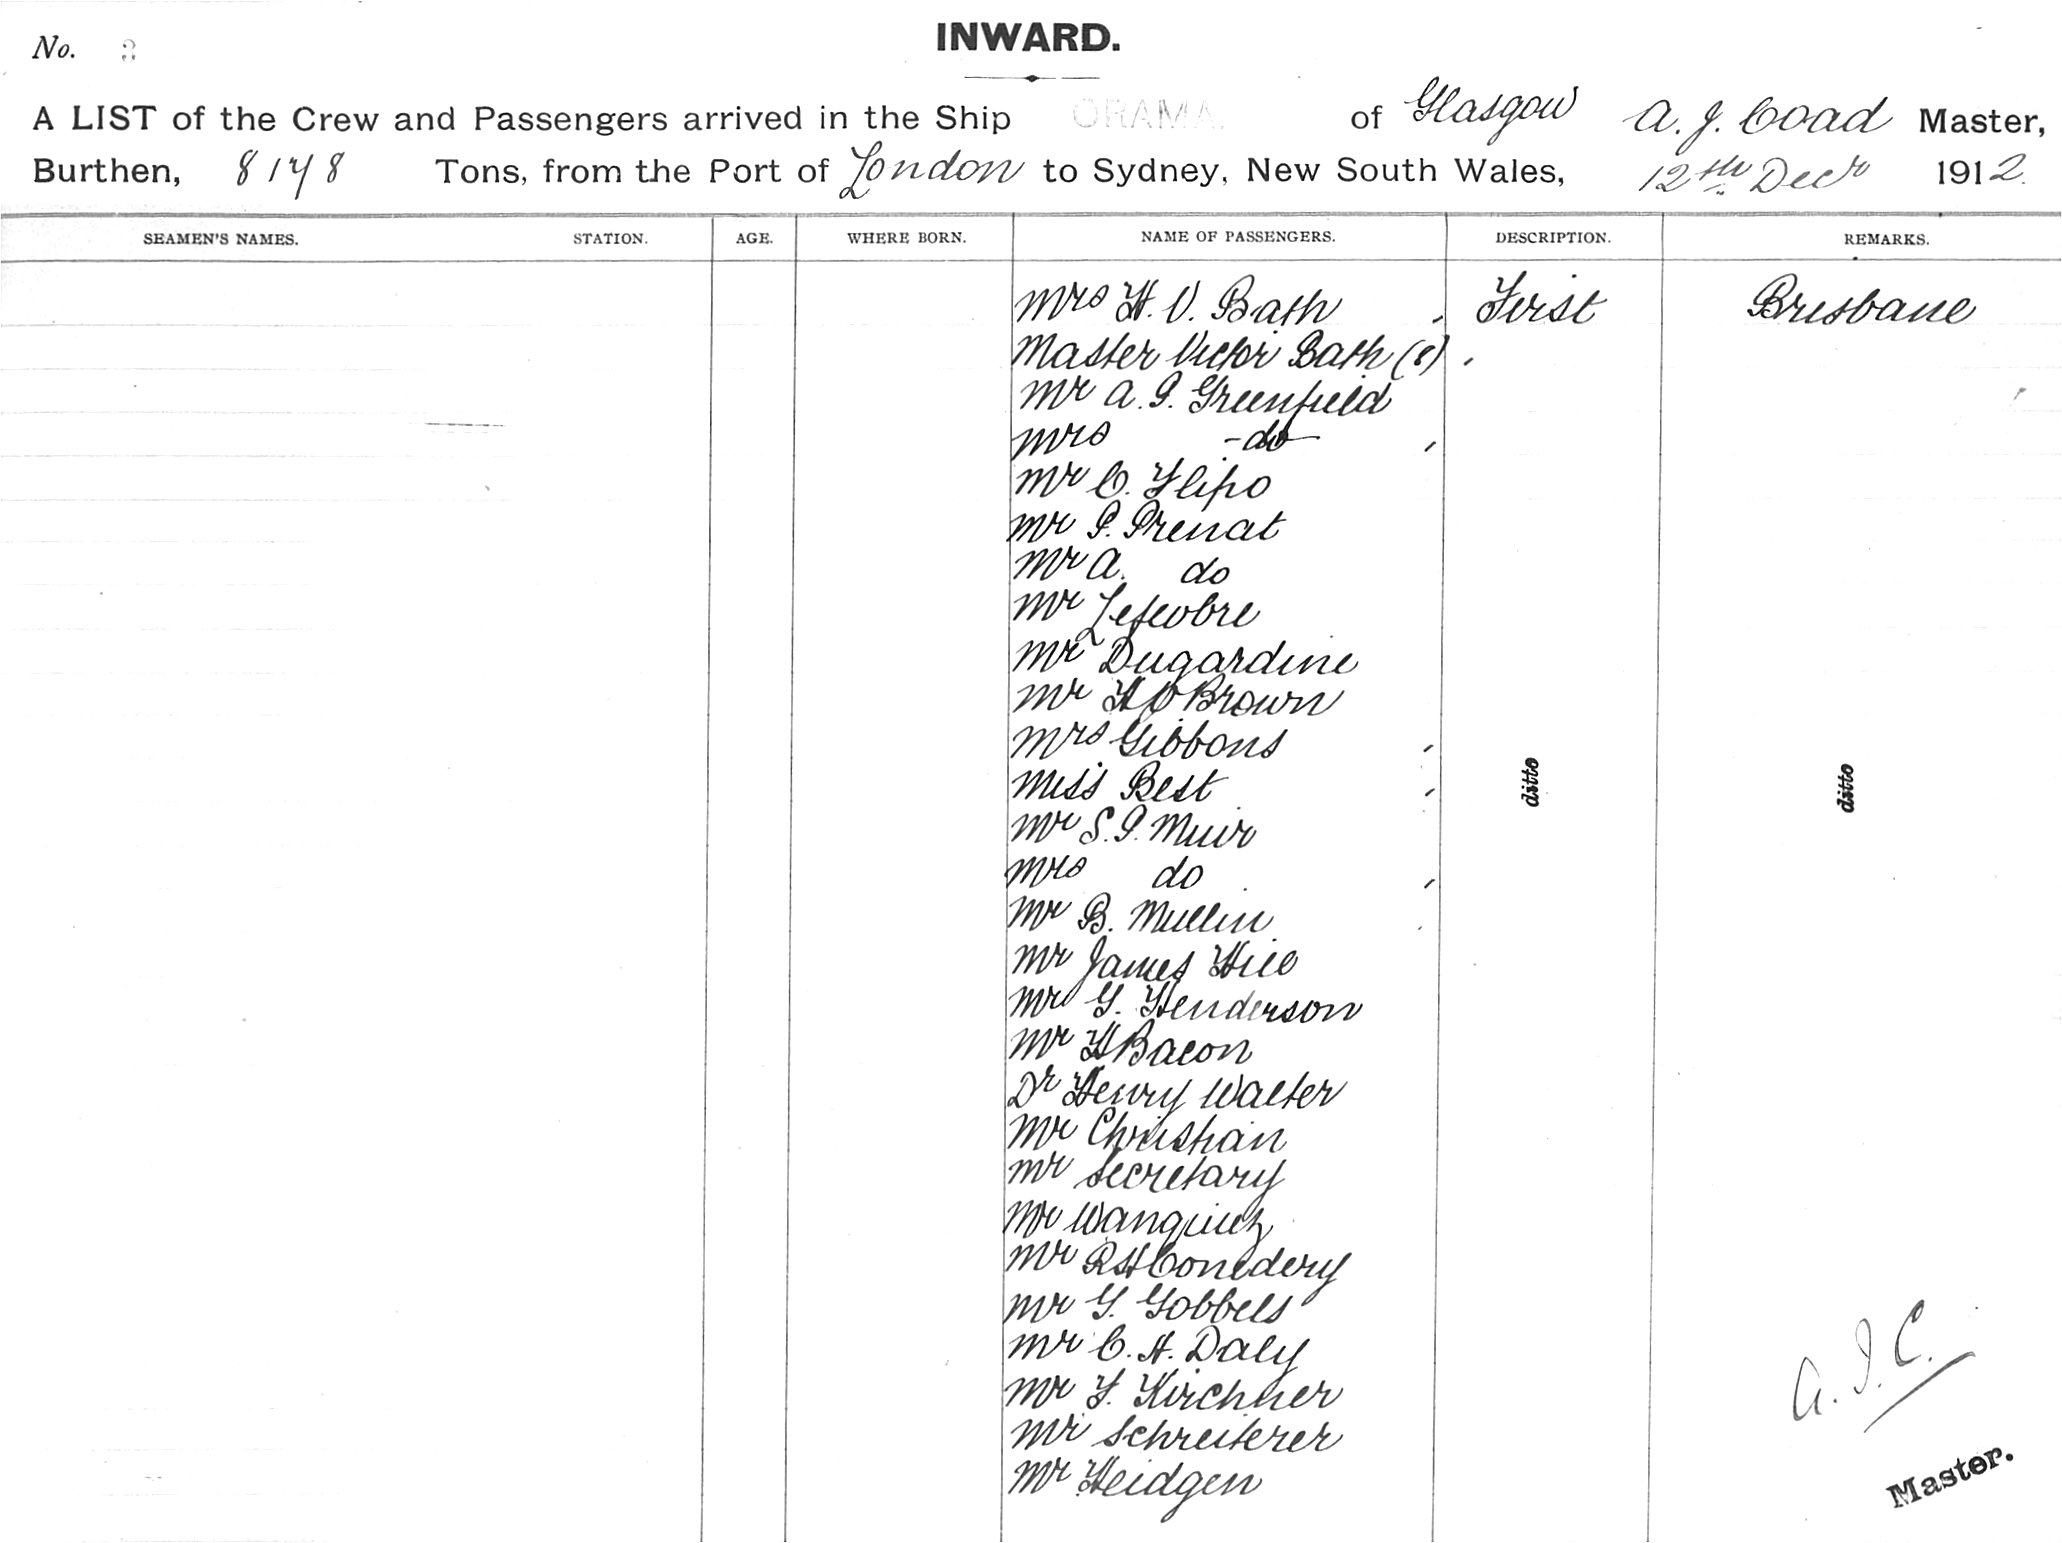 No. 2
INWARD.
A LIST of the Crew and Passengers arrived in the Ship ORAMA. of Glasgow A. J. Coad Master,
Burthen, 8178 Tons, from the Port of London to Sydney, New South Wales, 12th Decr 1912.
SEAMEN'S NAMES. STATION. AGE. WHERE BORN. NAME OF PASSENGERS. DESCRIPTION. REMARKS.
Mrs H. V. Bath First Brisbane
Master Victor Bath (8)
Mr A. G. Greenfield
Mrs - do -
Mr C. Flipo
Mr P. Prenat
Mr A. do
Mr Lefevbre
Mr Dugardine
Mr H C Brown
Mrs Gibbons
Miss Best ditto ditto
Mr S. G. Muir
Mrs do
Mr B. Mullin
Mr James Hill
Mr G. Henderson
Mr H Bacon
Dr Henry Walter
Mr Christian
Mr Secretary
Mr Wanquiez
Mr R H Conedery
Mr G. Gobbels
Mr C. H. Daly
Mr F. Kirchner
Mr Schreiterer
Mr Heidgen
A. J. C.
Master.